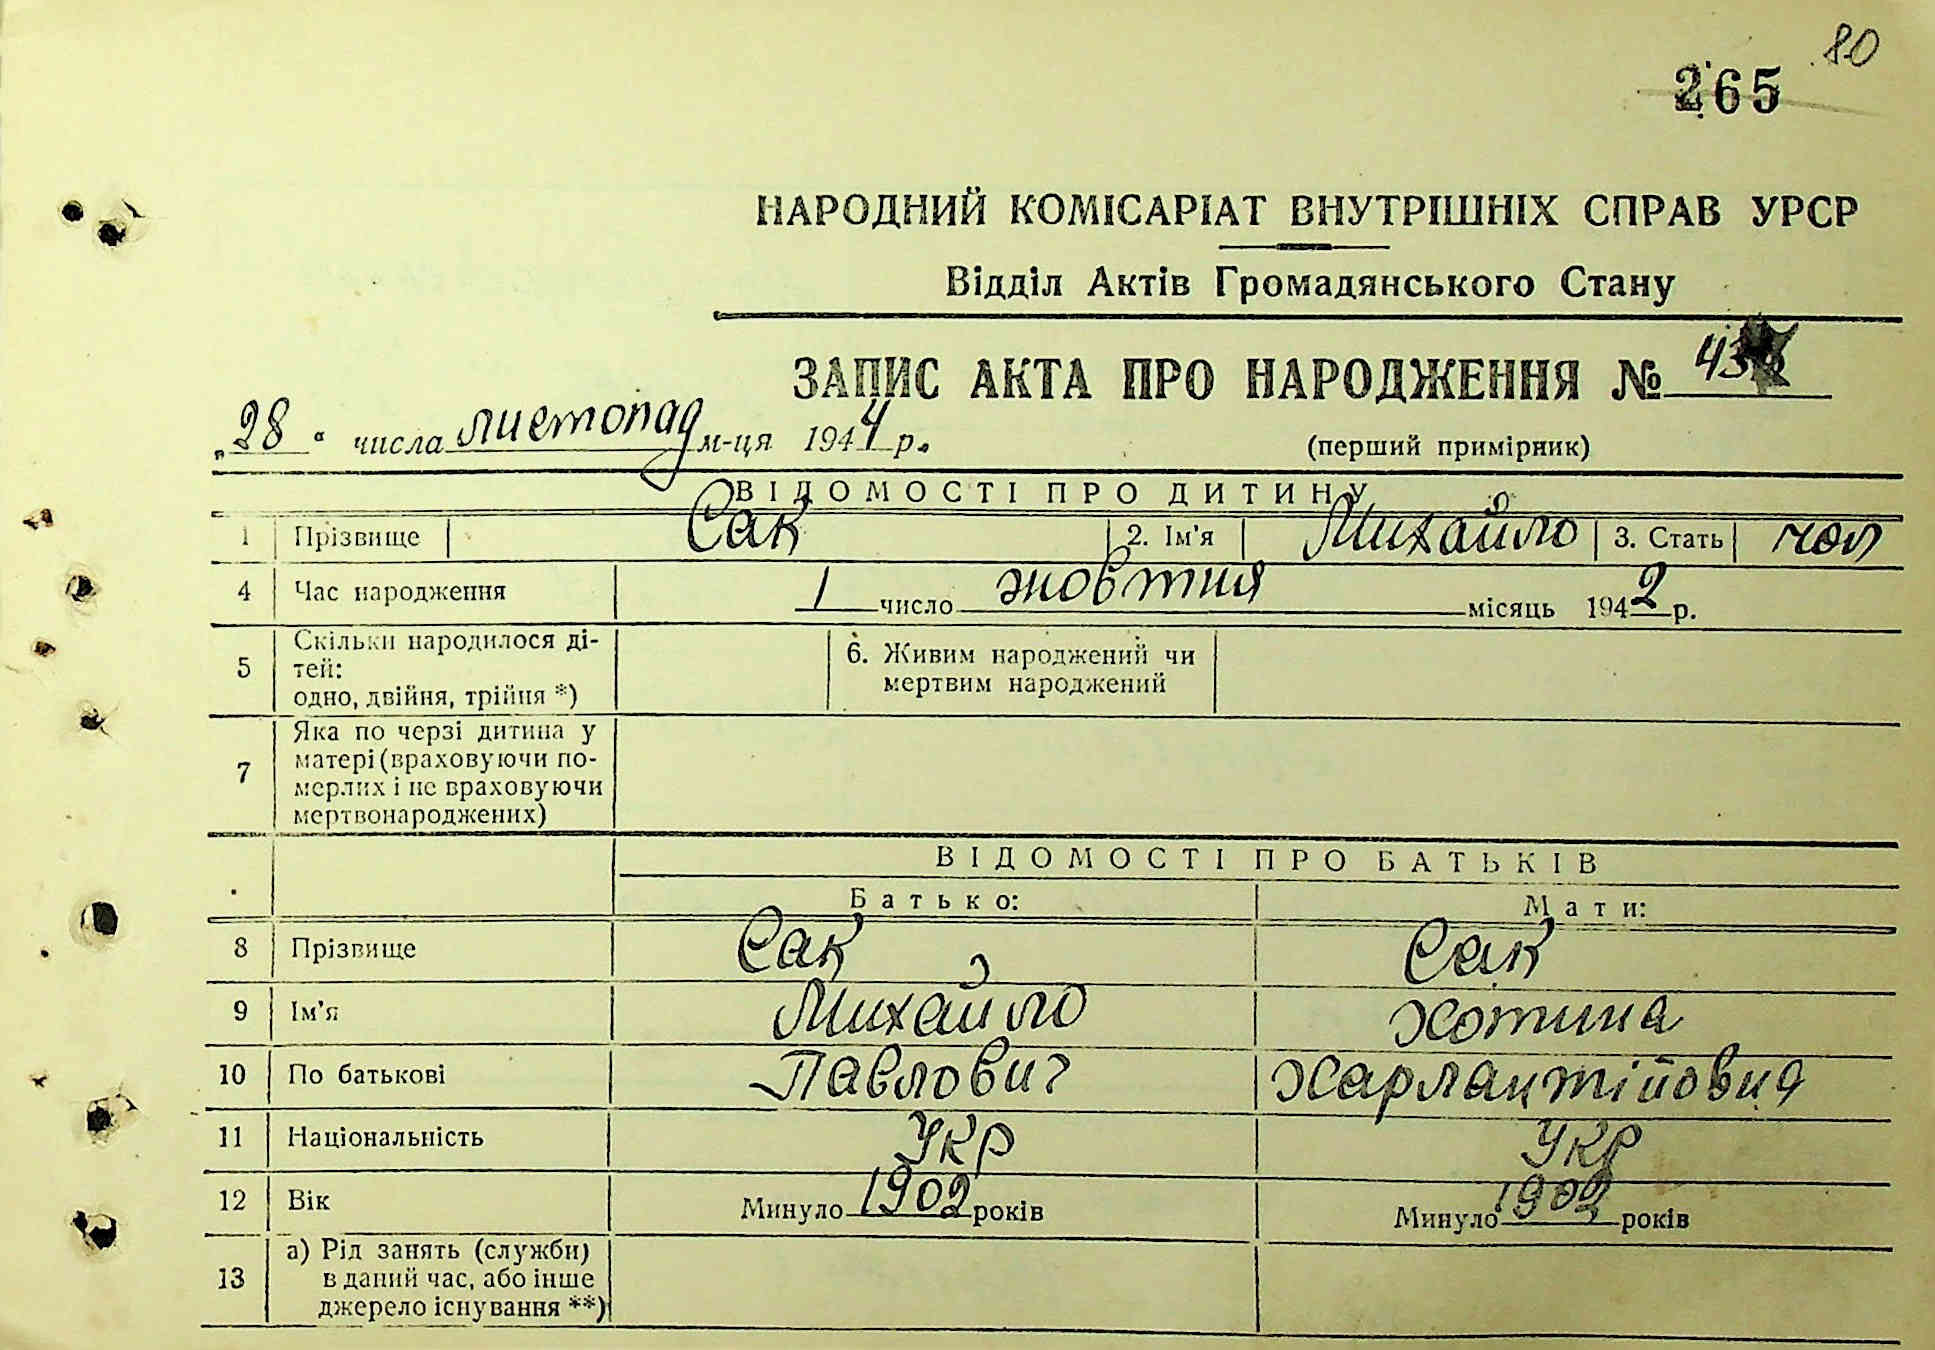 80
265
НАРОДНИЙ КОМІСАРІАТ ВНУТРІШНІХ СПРАВ УРСР
Відділ Актів Громадянського Стану
ЗАПИС АКТА ПРО НАРОДЖЕННЯ № 43
„28“ числа листопад м-ця 1944 р. (перший примірник)
ВІДОМОСТІ ПРО ДИТИНУ
1 Прізвище Сак 2. Ім'я Михайло 3. Стать чол
4 Час народження 1 число жовтня місяць 1942 р.
5 Скільки народилося ді-
тей:
одно, двійня, трійня *)
6. Живим народжений чи
мертвим народжений
7 Яка по черзі дитина у
матері (враховуючи по-
мерлих і не враховуючи
мертвонароджених)
ВІДОМОСТІ ПРО БАТЬКІВ
Батько: Мати:
8 Прізвище Сак Сак
9 Ім'я Михайло Хотина
10 По батькові Павлович Харлантіївна
11 Національність Укр Укр
12 Вік Минуло 1902 років Минуло 1902 років
13 а) Рід занять (служби)
в даний час, або інше
джерело існування **)